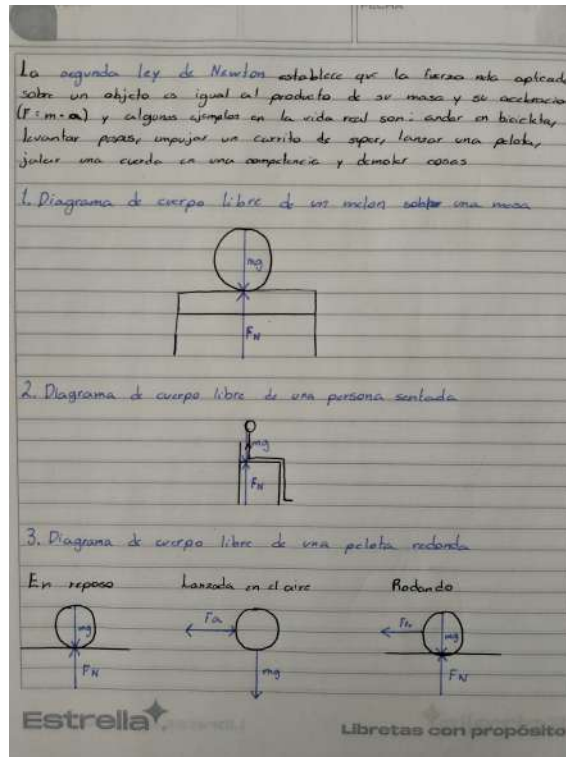 FECHA
La segunda ley de Newton establece que la fuerza neta aplicad
sobre un objeto es igual al producto de su masa y su aceleracio
(F = m · a) y algunos ejemplos en la vida real son: andar en bicicleta,
levantar pesas, empujar un carrito de super, lanzar una pelota,
jalar una cuerda en una competencia y demoler cosas
1. Diagrama de cuerpo libre de un melon sobre una mesa
mg
FN
2. Diagrama de cuerpo libre de una persona sentada
mg
FN
3. Diagrama de cuerpo libre de una pelota redonda
En reposo Lanzada en el aire Rodando
mg Fa mg
FN mg FN
Estrella
Libretas con propósito